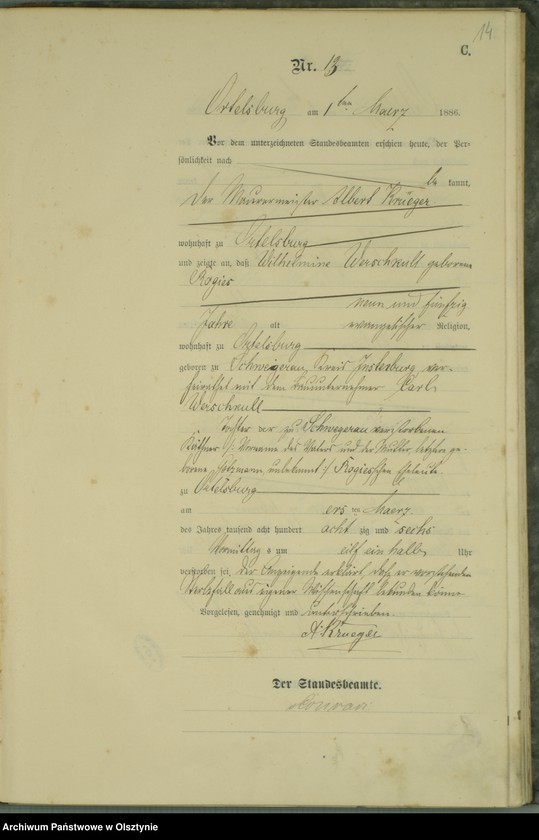 14.
C.
Nr. 13
Ortelsburg am 1ten Maerz 1886.
Vor dem unterzeichneten Standesbeamten erschien heute, der Per-
sönlichkeit nach
be kannt,
der Maurermeister Albert Krueger
wohnhaft zu Ortelsburg
und zeigte an, daß Wilhelmine Werschkull geborene
Rogies
neun und fünfzig
Jahre alt evangelischer Religion,
wohnhaft zu Ortelsburg
geboren zu Schwegerau, Kreis Insterburg, ver-
heirathet mit dem Karl
Werschkull
Tochter der zu Schwegerau verstorbenen
Käthner /: Vorname des Vaters und der Mutter, letztere ge-
borene unbekannt :/ Rogies'schen Eheleute
zu Ortelsburg
am ersten Maerz
des Jahres tausend acht hundert acht zig und sechs
Vormittag s um eilf ein halb Uhr
verstorben sei. Der Anzeigende erklärt, daß er vorstehenden
Sterbefall aus eigener Wissenschaft bekunden könne
Vorgelesen, genehmigt und unterschrieben.
A. Krueger
Der Standesbeamte.
Archiwum Państwowe w Olsztynie